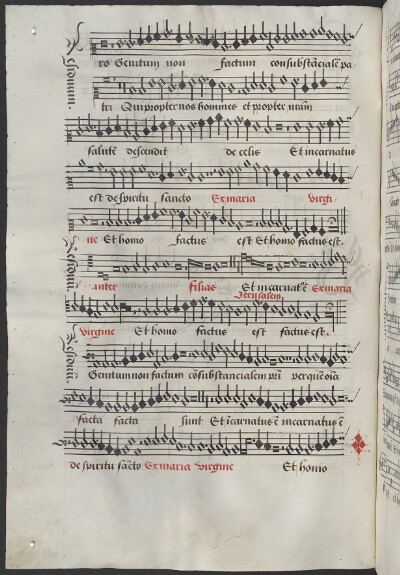 ro Genitum non factum consubstãcialẽ pa
tri Qui propter nos homines et propter nrãm
salutẽ descendit de celis Et incarnatus
est de spiritu sancto Ex maria virgi
ne Et homo factus est Et homo factus est.
inter filias Et incarnat9 ẽ Ex maria
Jerusalem
virgine Et homo factus est factus est.
Genitum non factum cõsubstancialem pri per quẽ oĩa
facta facta sunt Et ĩcarnatus ẽ incarnatus ẽ
de spiritu sãcto Ex maria virgine Et homo